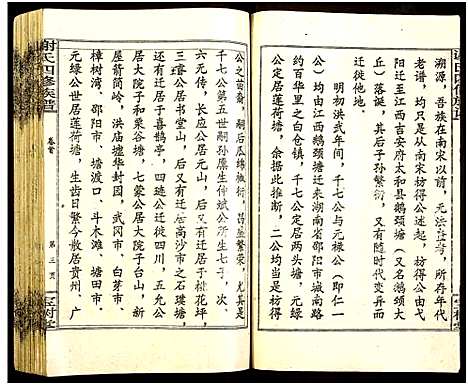 溯源，吾族在南宋以前，无法查考，所存年代
老谱，均只是从南宋枋得公记起，枋得公由弋
阳迁至江西吉安府太和县鹅颈塘（又名鹅颈大
丘）落诞，其后子孙繁衍，又有随时代变动而
迁徙他地。
明初洪武年间，千七公与元禄公（即仁一
公）均由江西鹅颈塘迁来湖南省邵阳市城南路
约百华里之白仓镇，千七公定居两头塘，元禄
公定居莲荷塘，余据此推断，二公均当是枋得
公之苗裔，嗣后瓜绵椒衍，昌盛繁荣，尤其是
千七公第五世嗣孙廉生伸斌公所生七子，次、
六无传，长应公居元山，后又有迁居于桃花坪，
三睿公居书堂山，后又有迁居高沙市之石堞塘，
后又有迁居于喜鹊亭，四雄公迁徙四川，五允公
居大院子和栗谷塘，七蒙公居大院子台山，
屋箭简岭，洪庙墟华封园，武冈市，白芽市。
元禄公世居莲荷塘，又有迁居邵阳县之黄荆、
樟树湾、邵阳市、塘渡口、斗木滩、塘田市、
生齿日繁今散居贵州、广
谢氏四修族谱
卷首
第三页
宝树堂